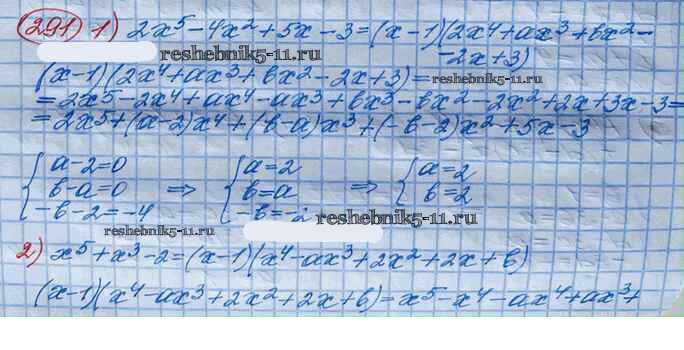 291 1) 2x⁵-4x²+5x-3=(x-1)(2x⁴+ax³+bx²-
-2x+3)
reshebnik5-11.ru
(x-1)(2x⁴+ax³+bx²-2x+3)=
=2x⁵-2x⁴+ax⁴-ax³+bx³-bx²-2x²+2x+3x-3=
=2x⁵+(a-2)x⁴+(b-a)x³+(-b-2)x²+5x-3
{a-2=0 {a=2 {a=2
b-a=0 ⇒ b=a ⇒ b=2
-b-2=-4 -b=-2 reshebnik5-11.ru
reshebnik5-11.ru
2) x⁵+x³-2=(x-1)(x⁴-ax³+2x²+2x+b)
(x-1)(x⁴-ax³+2x²+2x+b)=x⁵-x⁴-ax⁴+ax³+